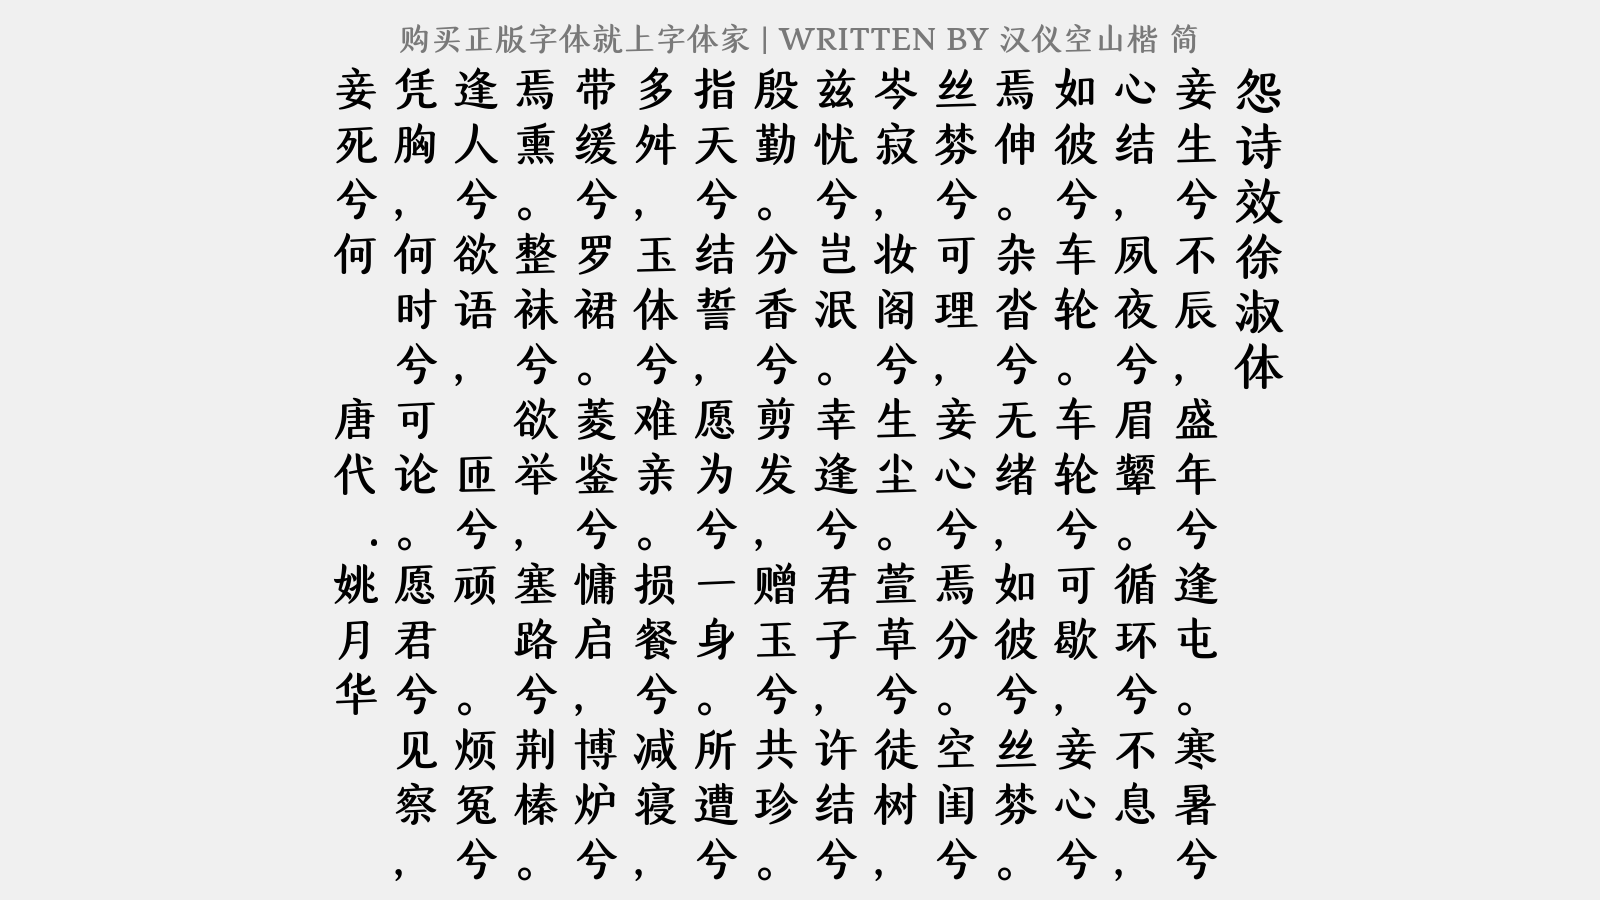 购买正版字体就上字体家 | WRITTEN BY 汉仪空山楷 简
怨诗效徐淑体
妾生兮不辰，盛年兮逢屯。寒暑兮
心结，夙夜兮眉颦。循环兮不息，
如彼兮车轮。车轮兮可歇，妾心兮
焉伸。杂沓兮无绪，如彼兮丝棼。
丝棼兮可理，妾心兮焉分。空闺兮
岑寂，妆阁兮生尘。萱草兮徒树，
兹忧兮岂泯。幸逢兮君子，许结兮
殷勤。分香兮剪发，赠玉兮共珍。
指天兮结誓，愿为兮一身。所遭兮
多舛，玉体兮难亲。损餐兮减寝，
带缓兮罗裙。菱鉴兮慵启，博炉兮
焉熏。整袜兮欲举，塞路兮荆榛。
逢人兮欲语， 匝兮顽 。烦冤兮
凭胸，何时兮可论。愿君兮见察，
妾死兮何 唐代 . 姚月华